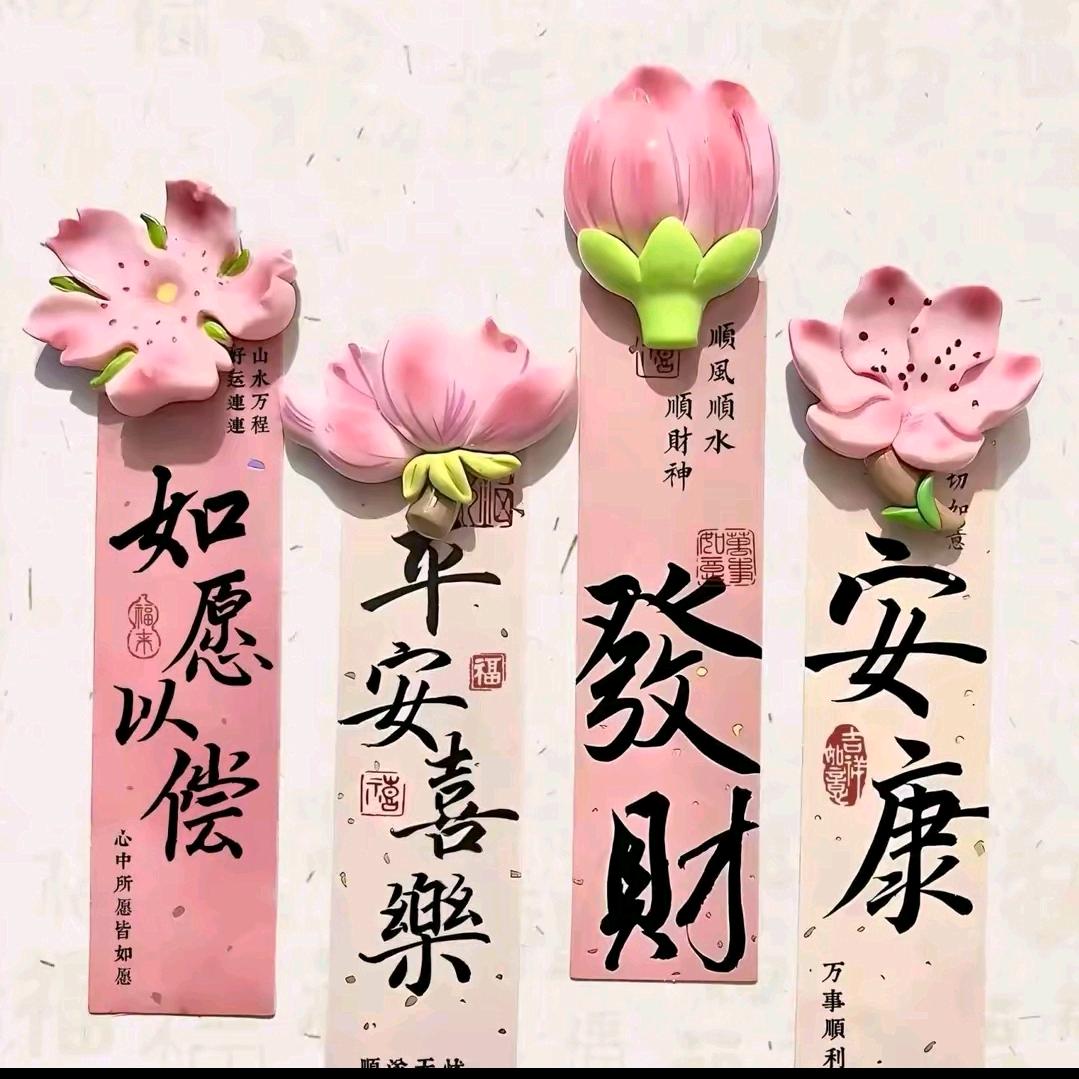 山水万程
好运連連
如愿以偿
福来
心中所愿皆如愿
平安喜樂
福
禧
順風順水
順財神
萬事如意
發財
切如意
安康
吉祥如意
万事順利